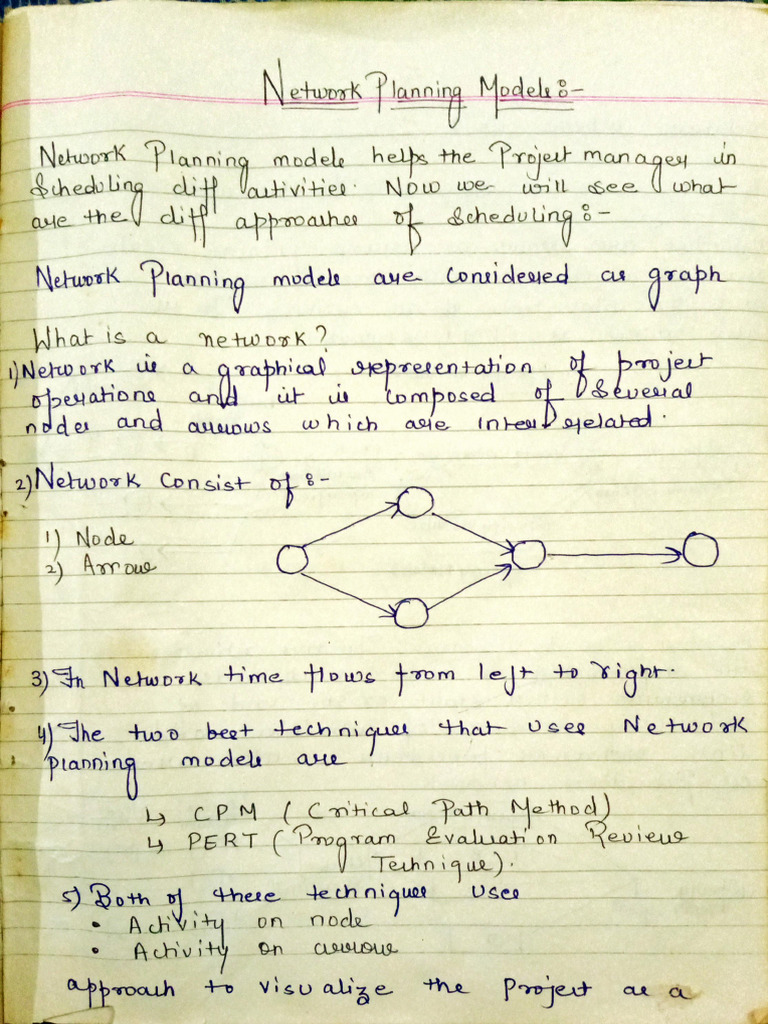 Network Planning Models:-
Network Planning models helps the Project manager in
Scheduling diff activities. Now we will see what
are the diff approaches of Scheduling:-
Network Planning models are considered as graph
What is a network?
1) Network is a graphical representation of project
operations and it is composed of Several
nodes and arrows which are inter related.
2) Network Consist of :-
1) Node
2) Arrow
3) In Network time flows from left to right.
4) The two best techniques that uses Network
planning models are
↳ CPM ( Critical Path Method)
↳ PERT ( Program Evaluation Review
Technique).
5) Both of these techniques uses
• Activity on node
• Activity on arrow
approach to visualize the project as a